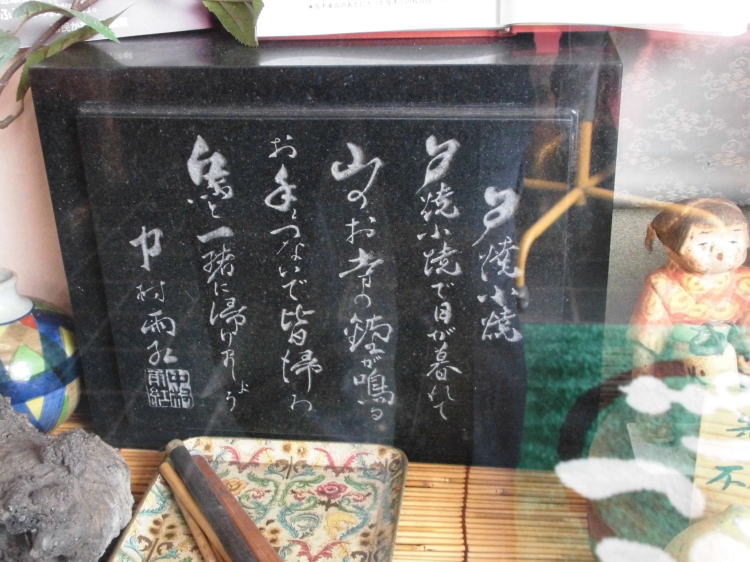 夕焼小焼
夕焼小焼で日が暮れて
山のお寺の鐘が鳴る
お手々つないで皆帰ろ
烏と一緒に帰りましょう
中村雨紅
中村
雨紅
不